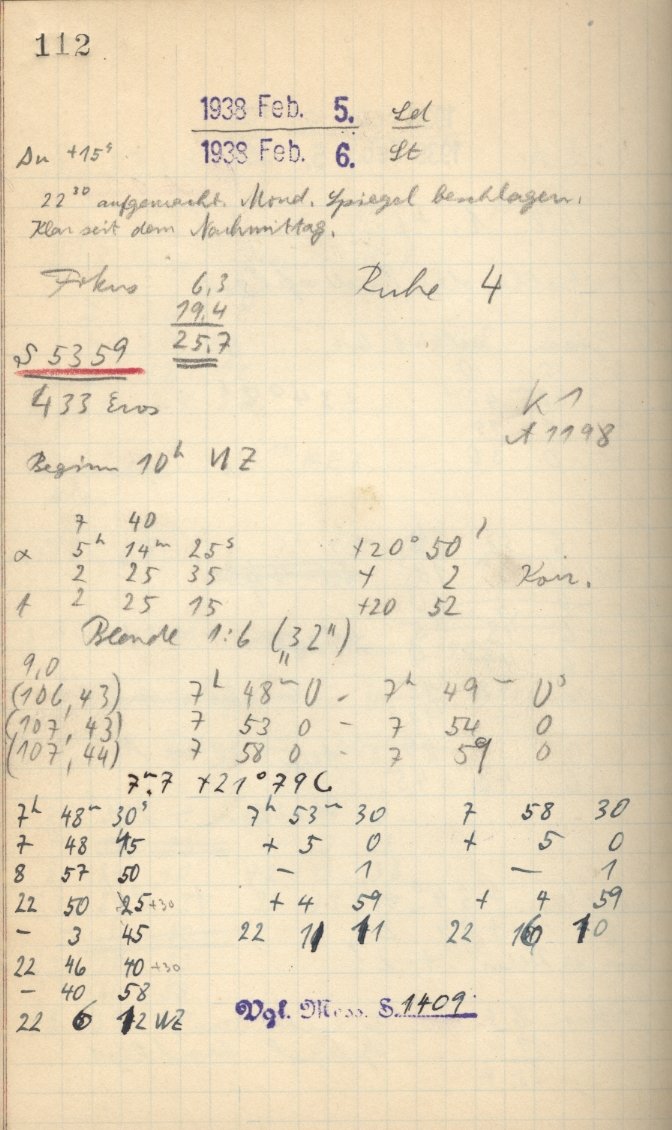 112
1938 Feb. 5. Sd
1938 Feb. 6. St
Du +15ˢ
22³⁰ aufgemacht. Mond. Spiegel beschlagen.
Klar seit dem Nachmittag.
Fokus 6,3 Ruhe 4
19,4
25,7
S 5359
433 Eros
K 1
A 1198
Beginn 10ʰ WZ
7 40
α 5ʰ 14ᵐ 25ˢ +20° 50'
2 25 35 + 2 Korr.
t 2 25 15 +20 52
Blende 1:6 (32")
9,0
(106, 43) 7ʰ 48ᵐ 0 - 7ʰ 49ᵐ 0ˢ
(107, 43) 7 53 0 - 7 54 0
(107, 44) 7 58 0 - 7 59 0
7ᵐ.7 +21°79
7ʰ 48ᵐ 30ˢ 7ʰ 53ᵐ 30 7 58 30
7 48 45 + 5 0 + 5 0
8 57 50 — 1 — 1
22 50 25 +30 + 4 59 + 4 59
- 3 45 22 11 11 22 16 10
22 46 40 +30
- 40 58
22 6 12 WZ
Vgl. Mess. S. 1409